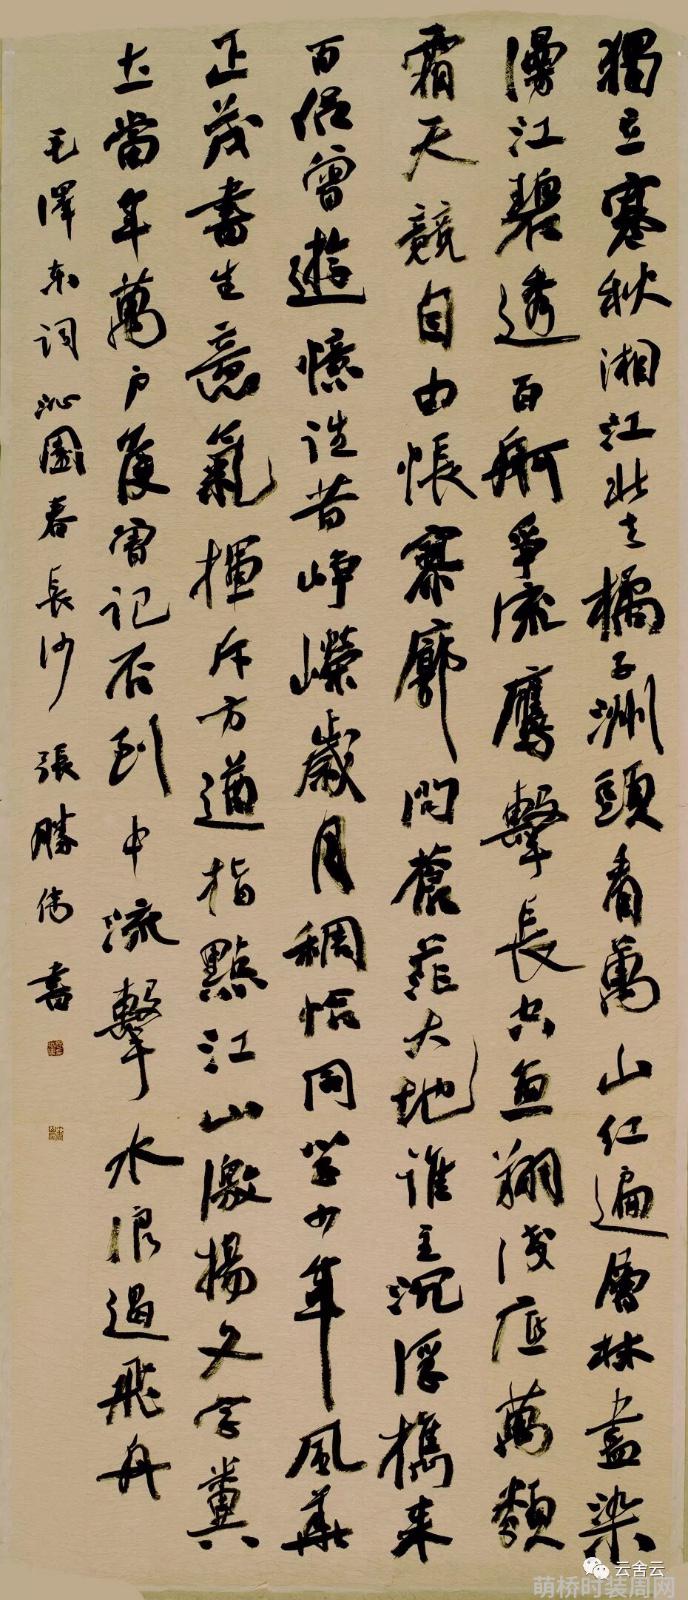 獨立寒秋湘江北去橘子洲頭看萬山紅遍層林盡染
漫江碧透百舸爭流鷹擊長空魚翔淺底萬類
霜天競自由悵寥廓問蒼茫大地誰主沉浮攜來
百侶曾遊憶往昔崢嶸歲月稠恰同學少年風華
正茂書生意氣揮斥方遒指點江山激揚文字糞
土當年萬戶侯曾記否到中流擊水浪遏飛舟
毛澤東詞沁園春長沙 張勝偉書
云舍云
萌桥时装周网